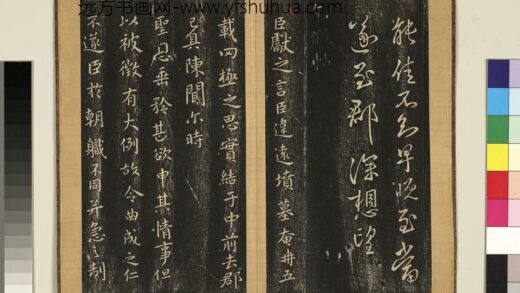 远方书画网-www.yfshuhua.com
能佳不知早晚至当
遂至郡深想望
臣獻之言臣違遠墳墓奄冉五
載罔極之思實結于中前去郡
已具陳聞尔時
聖恩垂矜甚欲申其情事但
以被徵有大例故令曲成之仁
不遂臣於朝職不同并急之制